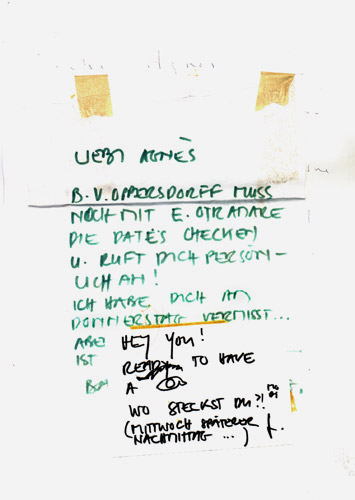 LIEBE AGNÈS
B. V. OPPERSDORFF MUSS
NOCH MIT E. OTRAMARE
DIE DATE'S CHECKEN
U. RUFT DICH PERSÖN-
LICH AN!
ICH HABE DICH AM
DONNERSTAG VERMISST...
ABER HEY YOU!
IST READY TO HAVE
A
WO STECKST DU?!
(MITTWOCH SPÄTERER
NACHMITTAG ...)